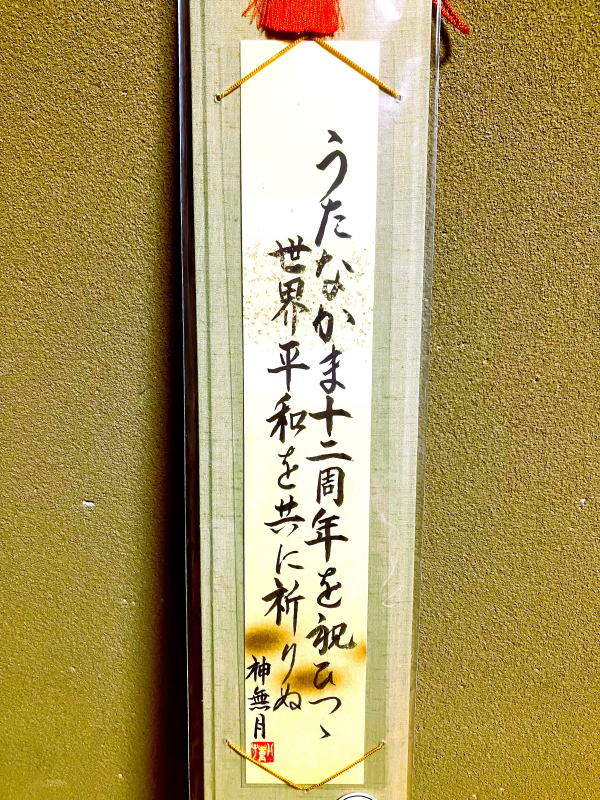 うたなかま十二周年を祝ひつゝ
世界平和を共に祈りぬ
神無月